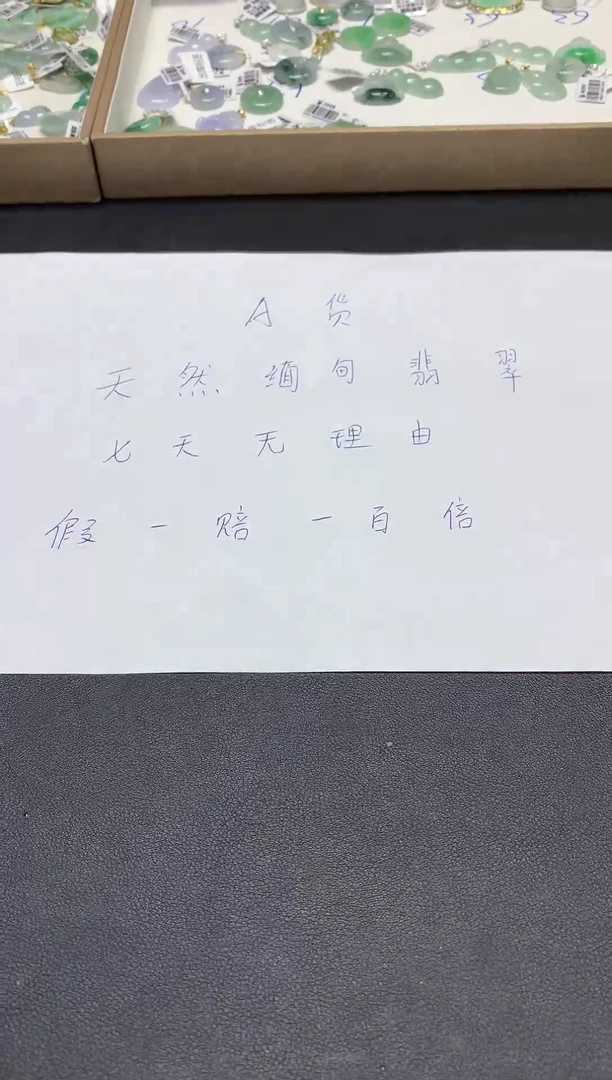 A 货
天 然 缅 甸 翡 翠
七 天 无 理 由
假 一 赔 一 百 倍